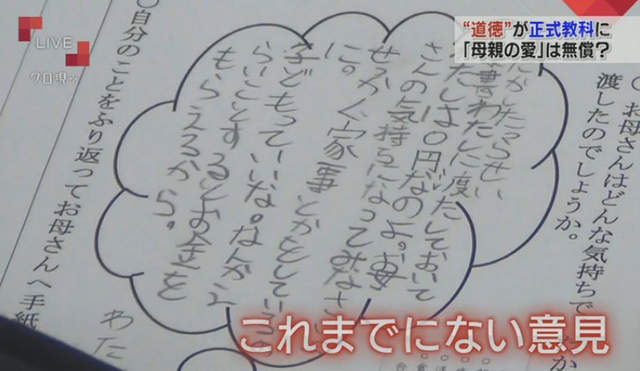 LIVE
クロ現+
“道徳”が正式教科に
「母親の愛」は無償?
〇 お母さんはどんな気持ちで
渡したのでしょうか。
たかしったらせい
書わたしに度だしておいて
たしは0円なのよ。お母
さんの気持ちになってみなさい
せっかく家事とかをしている
に。
子どもっていいな。なんかえ
らいことするとお金を
もらえるから。
〇自分のことをふり返ってお母さんへ手紙
わた
これまでにない意見